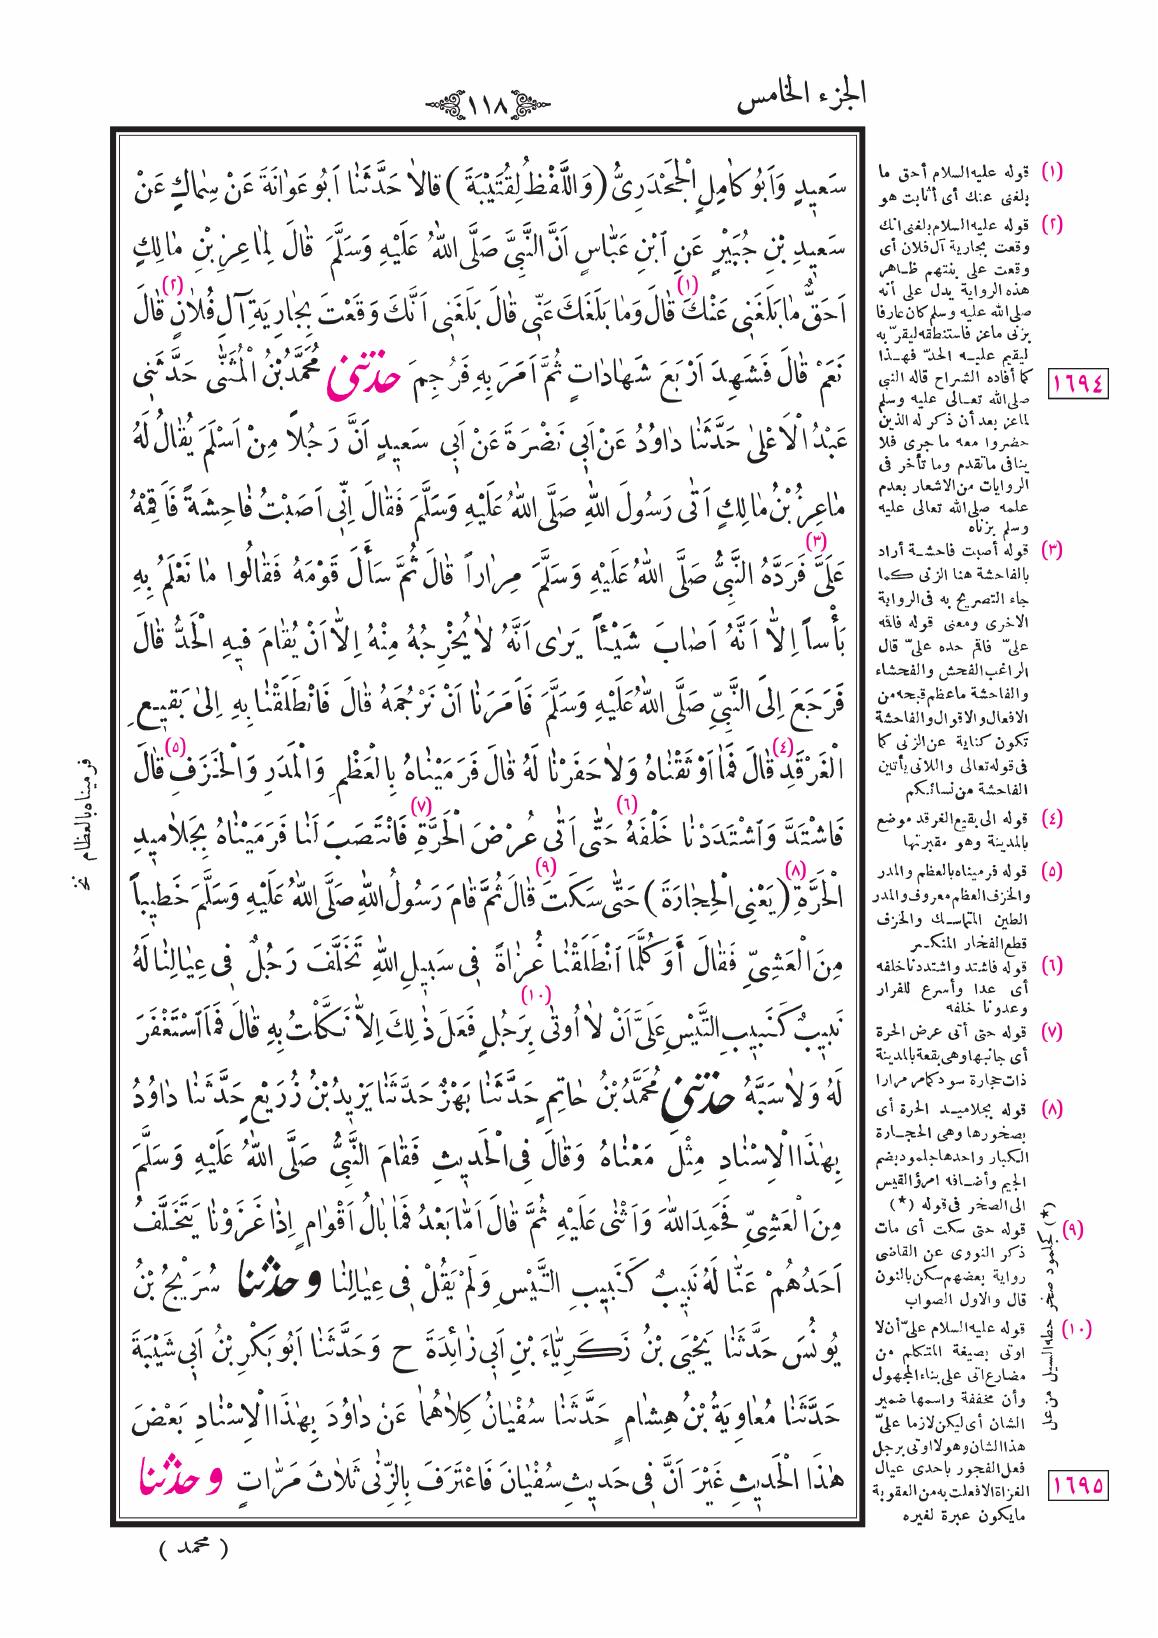 الجزء الخامس
١١٨
سَعيدٍ وَاَبُو كَامِلٍ الْجَحْدَرِىُّ (وَاللَّفْظُ لِقُتَيْبَةَ) قَالَا حَدَّثَنَا اَبُو عَوَانَةَ عَنْ سِمَاكٍ عَنْ
سَعيدِ بْنِ جُبَيْرٍ عَنِ ابْنِ عَبَّاسٍ اَنَّ النَّبِىَّ صَلَّى اللهُ عَلَيْهِ وَسَلَّمَ قَالَ لِمَاعِزِ بْنِ مَالِكٍ
اَحَقٌّ مَا بَلَغَنِى عَنْكَ (١) قَالَ وَمَا بَلَغَكَ عَنِّى قَالَ بَلَغَنِى اَنَّكَ وَقَعْتَ (٢) بِجَارِيَةِ آلِ فُلَانٍ قَالَ
نَعَمْ قَالَ فَشَهِدَ اَرْبَعَ شَهَادَاتٍ ثُمَّ اَمَرَ بِهِ فَرُجِمَ حدثنى مُحَمَّدُ بْنُ الْمُثَنَّى حَدَّثَنِى
عَبْدُ الْاَعْلَى حَدَّثَنَا دَاوُدُ عَنْ اَبِى نَضْرَةَ عَنْ اَبِى سَعيدٍ اَنَّ رَجُلاً مِنْ اَسْلَمَ يُقَالُ لَهُ
مَاعِزُ بْنُ مَالِكٍ اَتَى رَسُولَ اللهِ صَلَّى اللهُ عَلَيْهِ وَسَلَّمَ فَقَالَ اِنِّى اَصَبْتُ فَاحِشَةً فَاَقِمْهُ
عَلَىَّ (٣) فَرَدَّهُ النَّبِىُّ صَلَّى اللهُ عَلَيْهِ وَسَلَّمَ مِرَاراً قَالَ ثُمَّ سَأَلَ قَوْمَهُ فَقَالُوا مَا نَعْلَمُ بِهِ
بَأْساً اِلاَّ اَنَّهُ اَصَابَ شَيْئاً يَرَى اَنَّهُ لَا يُخْرِجُهُ مِنْهُ اِلاَّ اَنْ يُقَامَ فيهِ الْحَدُّ قَالَ
فَرَجَعَ اِلَى النَّبِىِّ صَلَّى اللهُ عَلَيْهِ وَسَلَّمَ فَاَمَرَنَا اَنْ نَرْجُمَهُ قَالَ فَانْطَلَقْنَا بِهِ اِلَى بَقيعِ
الْغَرْقَدِ (٤) قَالَ فَمَا اَوْثَقْنَاهُ وَلَا حَفَرْنَا لَهُ قَالَ فَرَمَيْنَاهُ بِالْعَظْمِ وَالْمَدَرِ وَالْخَزَفِ (٥) قَالَ
فَاشْتَدَّ وَاشْتَدَدْنَا خَلْفَهُ (٦) حَتَّى اَتَى عُرْضَ الْحَرَّةِ (٧) فَانْتَصَبَ لَنَا فَرَمَيْنَاهُ بِجَلَاميدِ
الْحَرَّةِ (٨) (يَعْنِى الْحِجَارَةَ) حَتَّى سَكَتَ (٩) قَالَ ثُمَّ قَامَ رَسُولُ اللهِ صَلَّى اللهُ عَلَيْهِ وَسَلَّمَ خَطيباً
مِنَ الْعَشِىِّ فَقَالَ أَوَ كُلَّمَا انْطَلَقْنَا غُزَاةً فِى سَبيلِ اللهِ تَخَلَّفَ رَجُلٌ فِى عِيَالِنَا لَهُ
نَبيبٌ كَنَبيبِ التَّيْسِ عَلَىَّ اَنْ لَا اُوتَى (١٠) بِرَجُلٍ فَعَلَ ذَلِكَ اِلاَّ نَكَّلْتُ بِهِ قَالَ فَمَا اسْتَغْفَرَ
لَهُ وَلَا سَبَّهُ حدثنى مُحَمَّدُ بْنُ حَاتِمٍ حَدَّثَنَا بَهْزٌ حَدَّثَنَا يَزيدُ بْنُ زُرَيْعٍ حَدَّثَنَا دَاوُدُ
بِهَذَا الْاِسْنَادِ مِثْلَ مَعْنَاهُ وَقَالَ فِى الْحَديثِ فَقَامَ النَّبِىُّ صَلَّى اللهُ عَلَيْهِ وَسَلَّمَ
مِنَ الْعَشِىِّ فَحَمِدَ اللهَ وَاَثْنَى عَلَيْهِ ثُمَّ قَالَ اَمَّا بَعْدُ فَمَا بَالُ اَقْوَامٍ اِذَا غَزَوْنَا يَتَخَلَّفُ
اَحَدُهُمْ عَنَّا لَهُ نَبيبٌ كَنَبيبِ التَّيْسِ وَلَمْ يَقُلْ فِى عِيَالِنَا وحدثنا سُرَيْجُ بْنُ
يُونُسَ حَدَّثَنَا يَحْيَى بْنُ زَكَرِيَّاءَ بْنِ اَبِى زَائِدَةَ ح وَحَدَّثَنَا اَبُو بَكْرِ بْنُ اَبِى شَيْبَةَ
حَدَّثَنَا مُعَاوِيَةُ بْنُ هِشَامٍ حَدَّثَنَا سُفْيَانُ كِلَاهُمَا عَنْ دَاوُدَ بِهَذَا الْاِسْنَادِ بَعْضَ
هَذَا الْحَديثِ غَيْرَ اَنَّ فِى حَديثِ سُفْيَانَ فَاعْتَرَفَ بِالزِّنَى ثَلَاثَ مَرَّاتٍ وحدثنا
( محمد )
(١) قوله عليه السلام أحق ما
بلغنى عنك أى أثابت هو
(٢) قوله عليه السلام بلغنى انك
وقعت بجارية آل فلان أى
وقعت على بنتهم ظاهر
هذه الرواية يدل على أنه
صلى الله عليه وسلم كان عارفا
بزنى ماعز فاستنطقه ليقرّ به
ليقيم عليه الحدّ فهذا
كما أفاده الشراح قاله النبى
صلى الله تعالى عليه وسلم
لماعز بعد أن ذكر له الذين
حضروا معه ما جرى فلا
ينافى ما تقدم وما تأخر فى
الروايات من الاشعار بعدم
علمه صلى الله تعالى عليه
وسلم بزناه
(٣) قوله أصبت فاحشة أراد
بالفاحشة هنا الزنى كما
جاء التصريح به فى الرواية
الاخرى ومعنى قوله فاقمه
علىّ فاقم حده علىّ قال
الراغب الفحش والفحشاء
والفاحشة ما عظم قبحه من
الافعال والاقوال والفاحشة
تكون كناية عن الزنى كما
فى قوله تعالى واللاتى يأتين
الفاحشة من نسائكم
(٤) قوله الى بقيع الغرقد موضع
بالمدينة وهو مقبرتها
(٥) قوله فرميناه بالعظم والمدر
والخزف العظم معروف والمدر
الطين المتماسك والخزف
قطع الفخار المنكسر
(٦) قوله فاشتد واشتددنا خلفه
أى عدا وأسرع للفرار
وعدونا خلفه
(٧) قوله حتى أتى عرض الحرة
أى جانبها وهى بقعة بالمدينة
ذات حجارة سود كما مر مرارا
(٨) قوله بجلاميد الحرة أى
بصخورها وهى الحجارة
الكبار واحدها جلمود بضم
الجيم وأضافه امرؤ القيس
الى الصخر فى قوله (*)
(٩) قوله حتى سكت أى مات
ذكر النووى عن القاضى
رواية بعضهم سكن بالنون
قال والاول الصواب
(١٠) قوله عليه السلام علىّ أن لا
اوتى بصيغة المتكلم من
مضارع اتى على بناء المجهول
وأن مخففة واسمها ضمير
الشان أى ليكن لازما علىّ
هذا الشان وهو لا اوتى برجل
فعل الفجور باحدى عيال
الغزاة الا فعلت به من العقوبة
ما يكون عبرة لغيره
(*) كجلمود صخر حطه السيل من عل
١٦٩٤
١٦٩٥
فرميناه بالعظام نخ